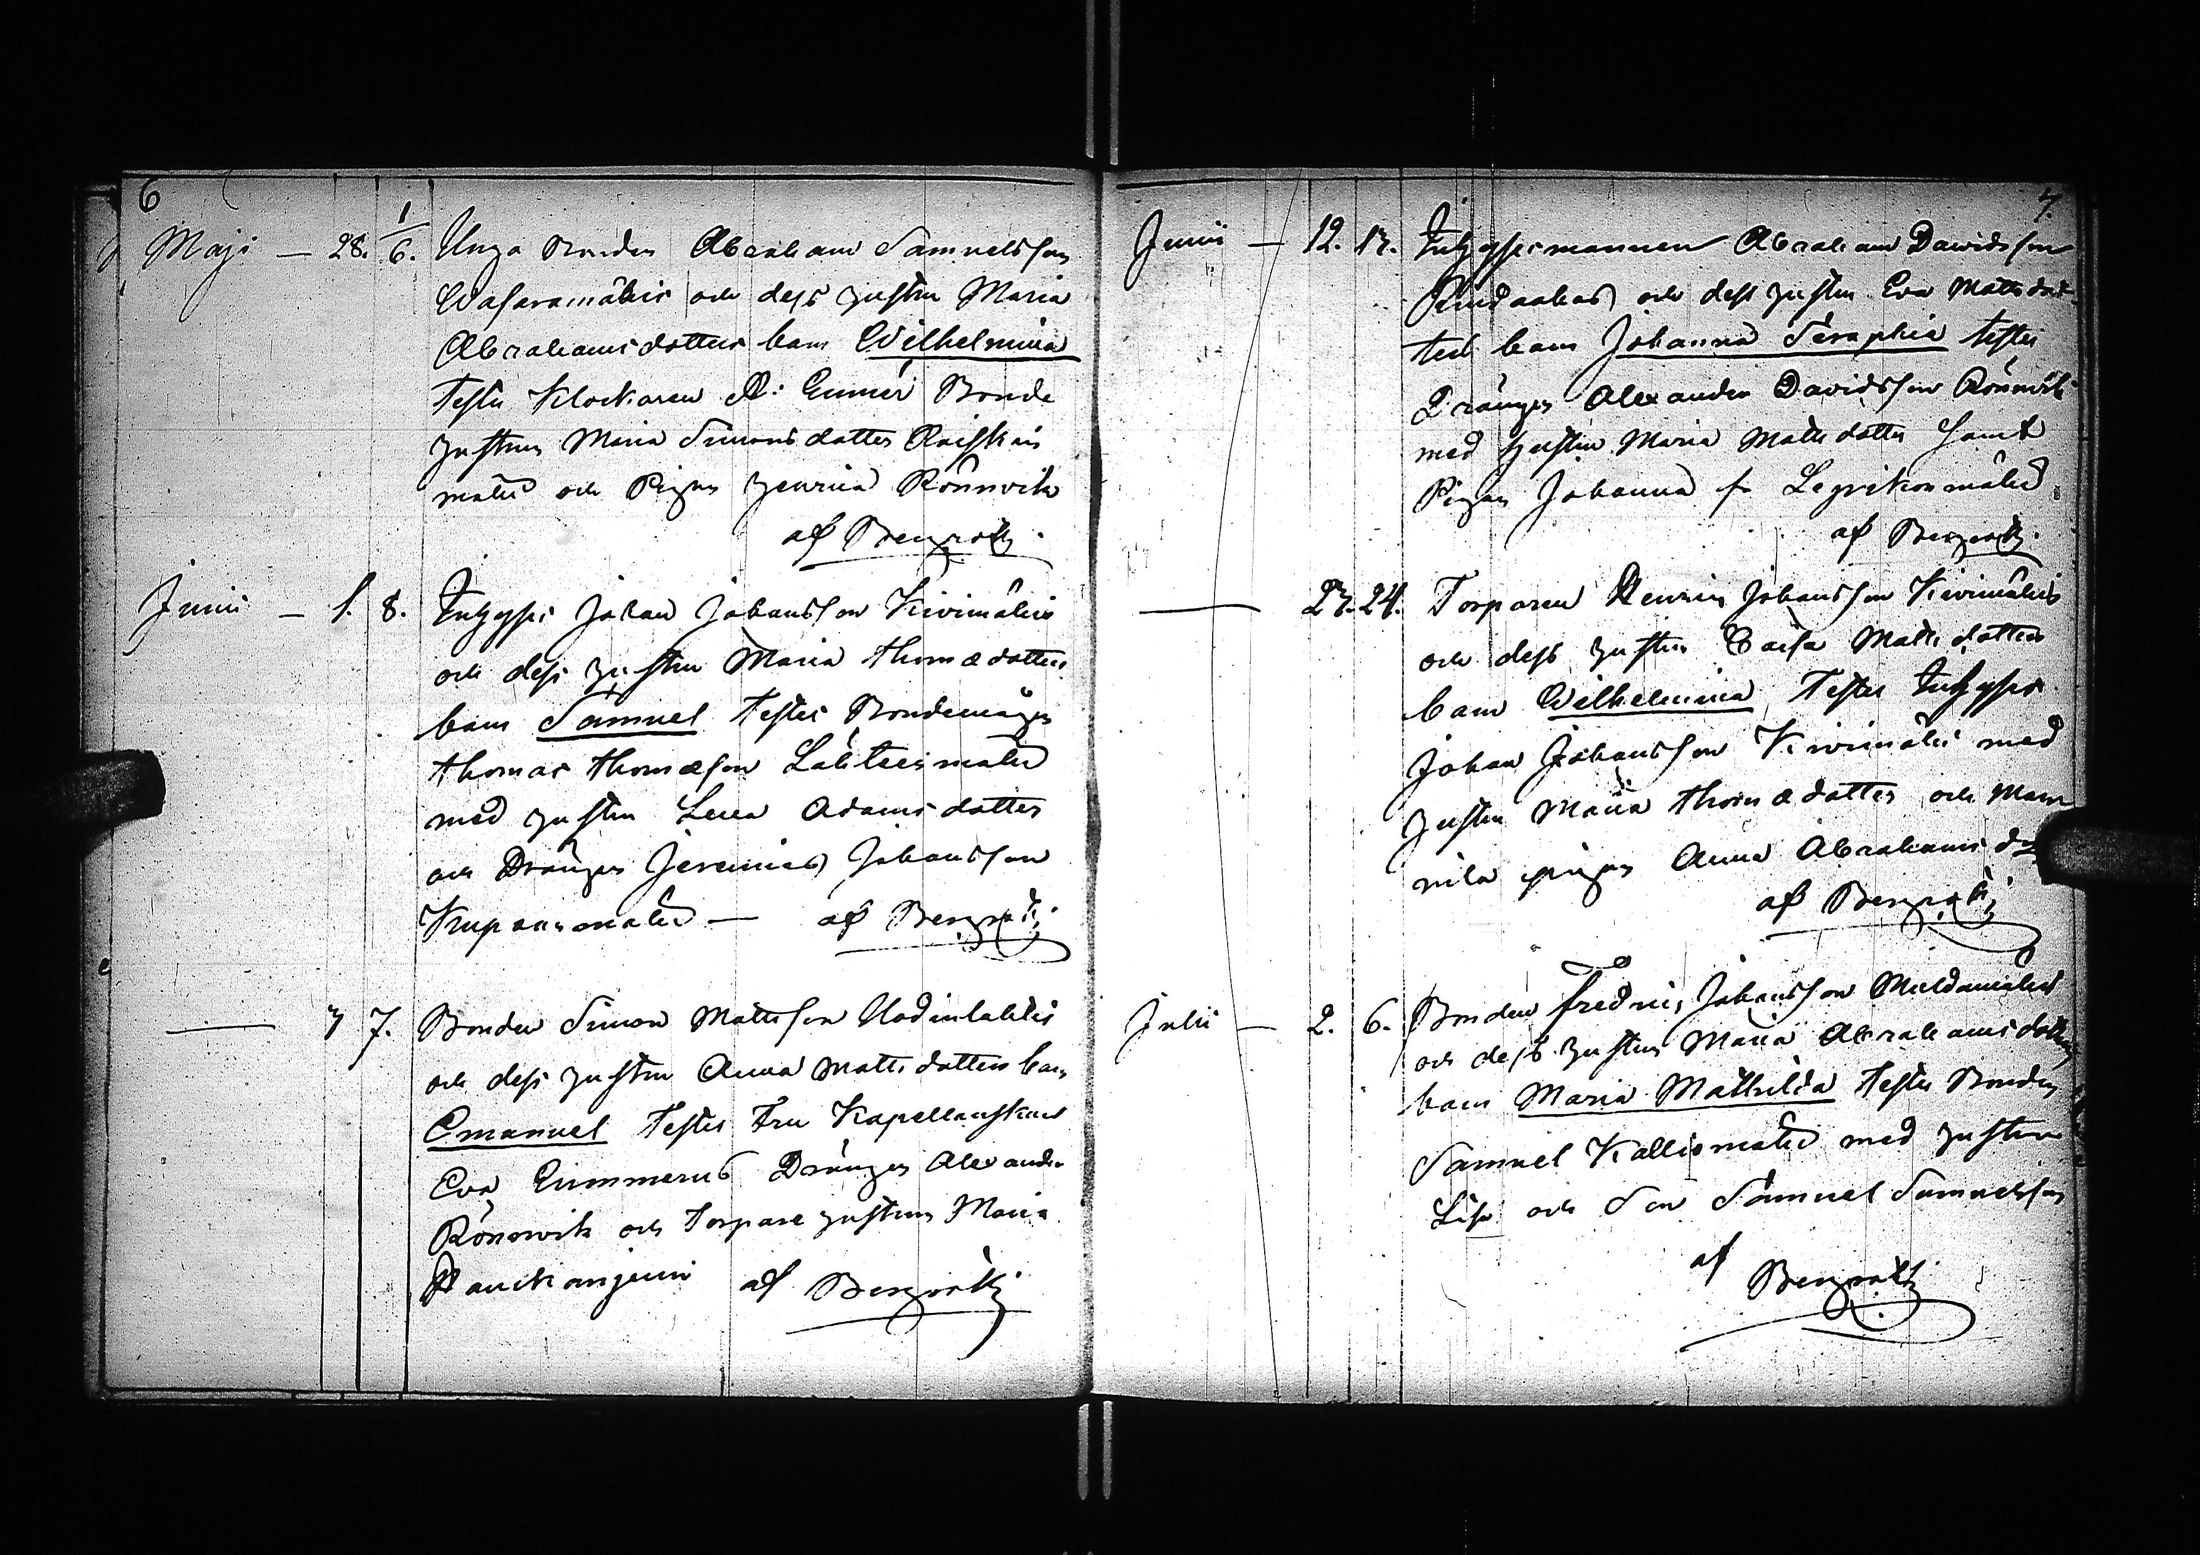 6
Maji — 28. 1/6. Unga Bonden Abraham Samuelsson
Wasaramäkis och dess hustru Maria
Abrahamsdotters barn Wilhelmina
Testes Klockaren Bonde
hustrun Maria Simonsdotter
mäki och Pigan Henrica Rönnvik
af
Junii — 1. 8. Inhyses Johan Johansson Kivimäkis
och dess hustru Maria Thomædotters
barn Samuel Testes Bondemågen
Thomas Thomæson Lähteismäki
med hustru Lena Adamsdotter
och Drängen Jeremias Johansson
af
— 7 7. Bonden Simon Mattsson Uodinlahtis
och dess hustru Anna Mattsdotters barn
Emanuel Testes Fru Kapellanskan
Eva Drängen Alexander
Rönnvik och Torpare hustrun Maria
af
7.
Junii — 12. 17. Inhysesmannen Abraham Davidsson
och dess hustru Eva Mattsdot-
ters barn Johanna Seraphia testes
Drängen Alexander Davidsson Rönnvik
med hustru Maria Mattsdotter samt
Pigan Johanna
af
— 23. 24. Torparen Henric Johansson Kivimäkis
och dess hustru Caisa Mattsdotters
barn Wilhelmina Testes Inhyses
Johan Johansson Kivimäki med
hustru Maria Thomædotter och Mam-
sila pigan Anna Abrahams
af
Julii — 2. 6. Bonden Fredric Johansson
och dess hustru Maria Abrahamsdotters
barn Maria Mathilda Testes Bonden
Samuel Kalliomäki med hustru
Lisa och Son Samuel Samuelsson
af